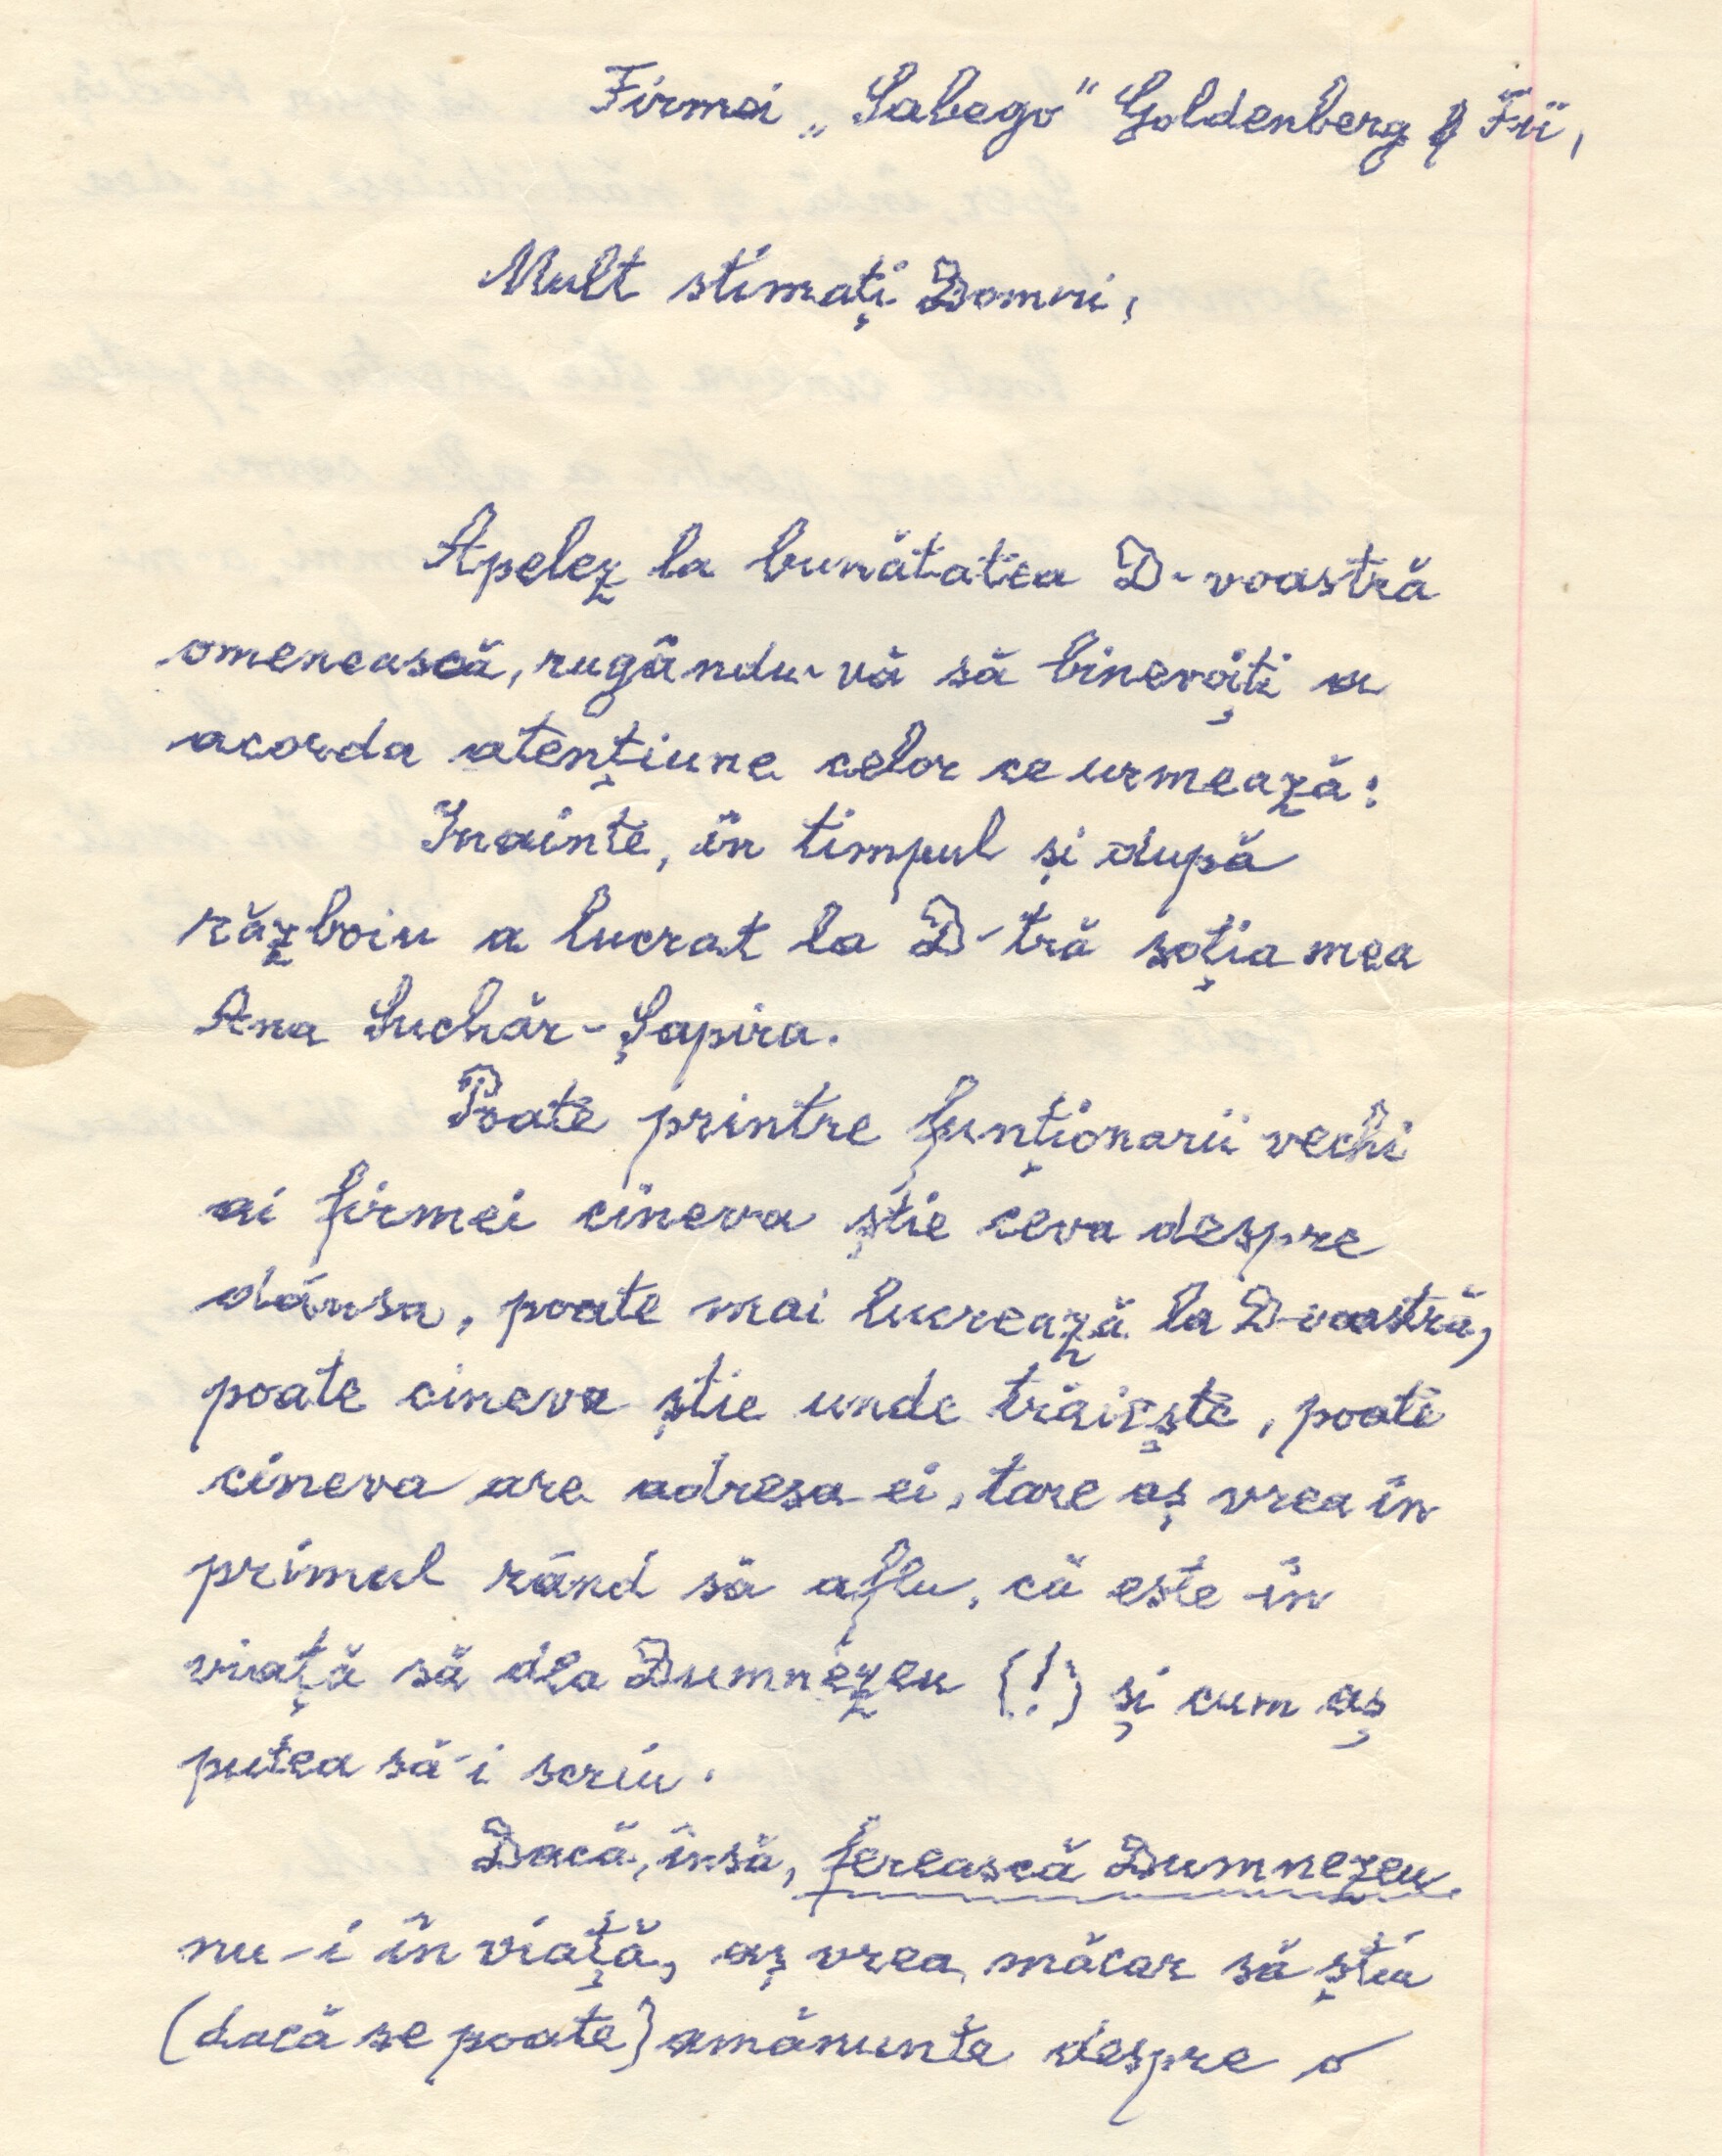 Firmei „Sabego" Goldenberg & Fii,
Mult stimaţi Domni,
Apelez la bunătatea D-voastră
omenească, rugându-vă să binevoiţi a
acorda atenţiune celor ce urmează:
Inainte, în timpul şi după
războiu a lucrat la D-tră soţia mea
Ana Suchăr-Şapira.
Poate printre funţionarii vechi
ai firmei cineva ştie ceva despre
dânsa, poate mai lucrează la D-voastră,
poate cineva ştie unde trăieşte, poate
cineva are adresa ei, tare aş vrea în
primul rând să aflu, că este în
viaţă să dea Dumnezeu (!) şi cum aş
putea să-i scriu.
Dacă, însă, ferească Dumnezeu
nu-i în viaţă, aş vrea măcar să ştiu
(dacă se poate) amănunte despre